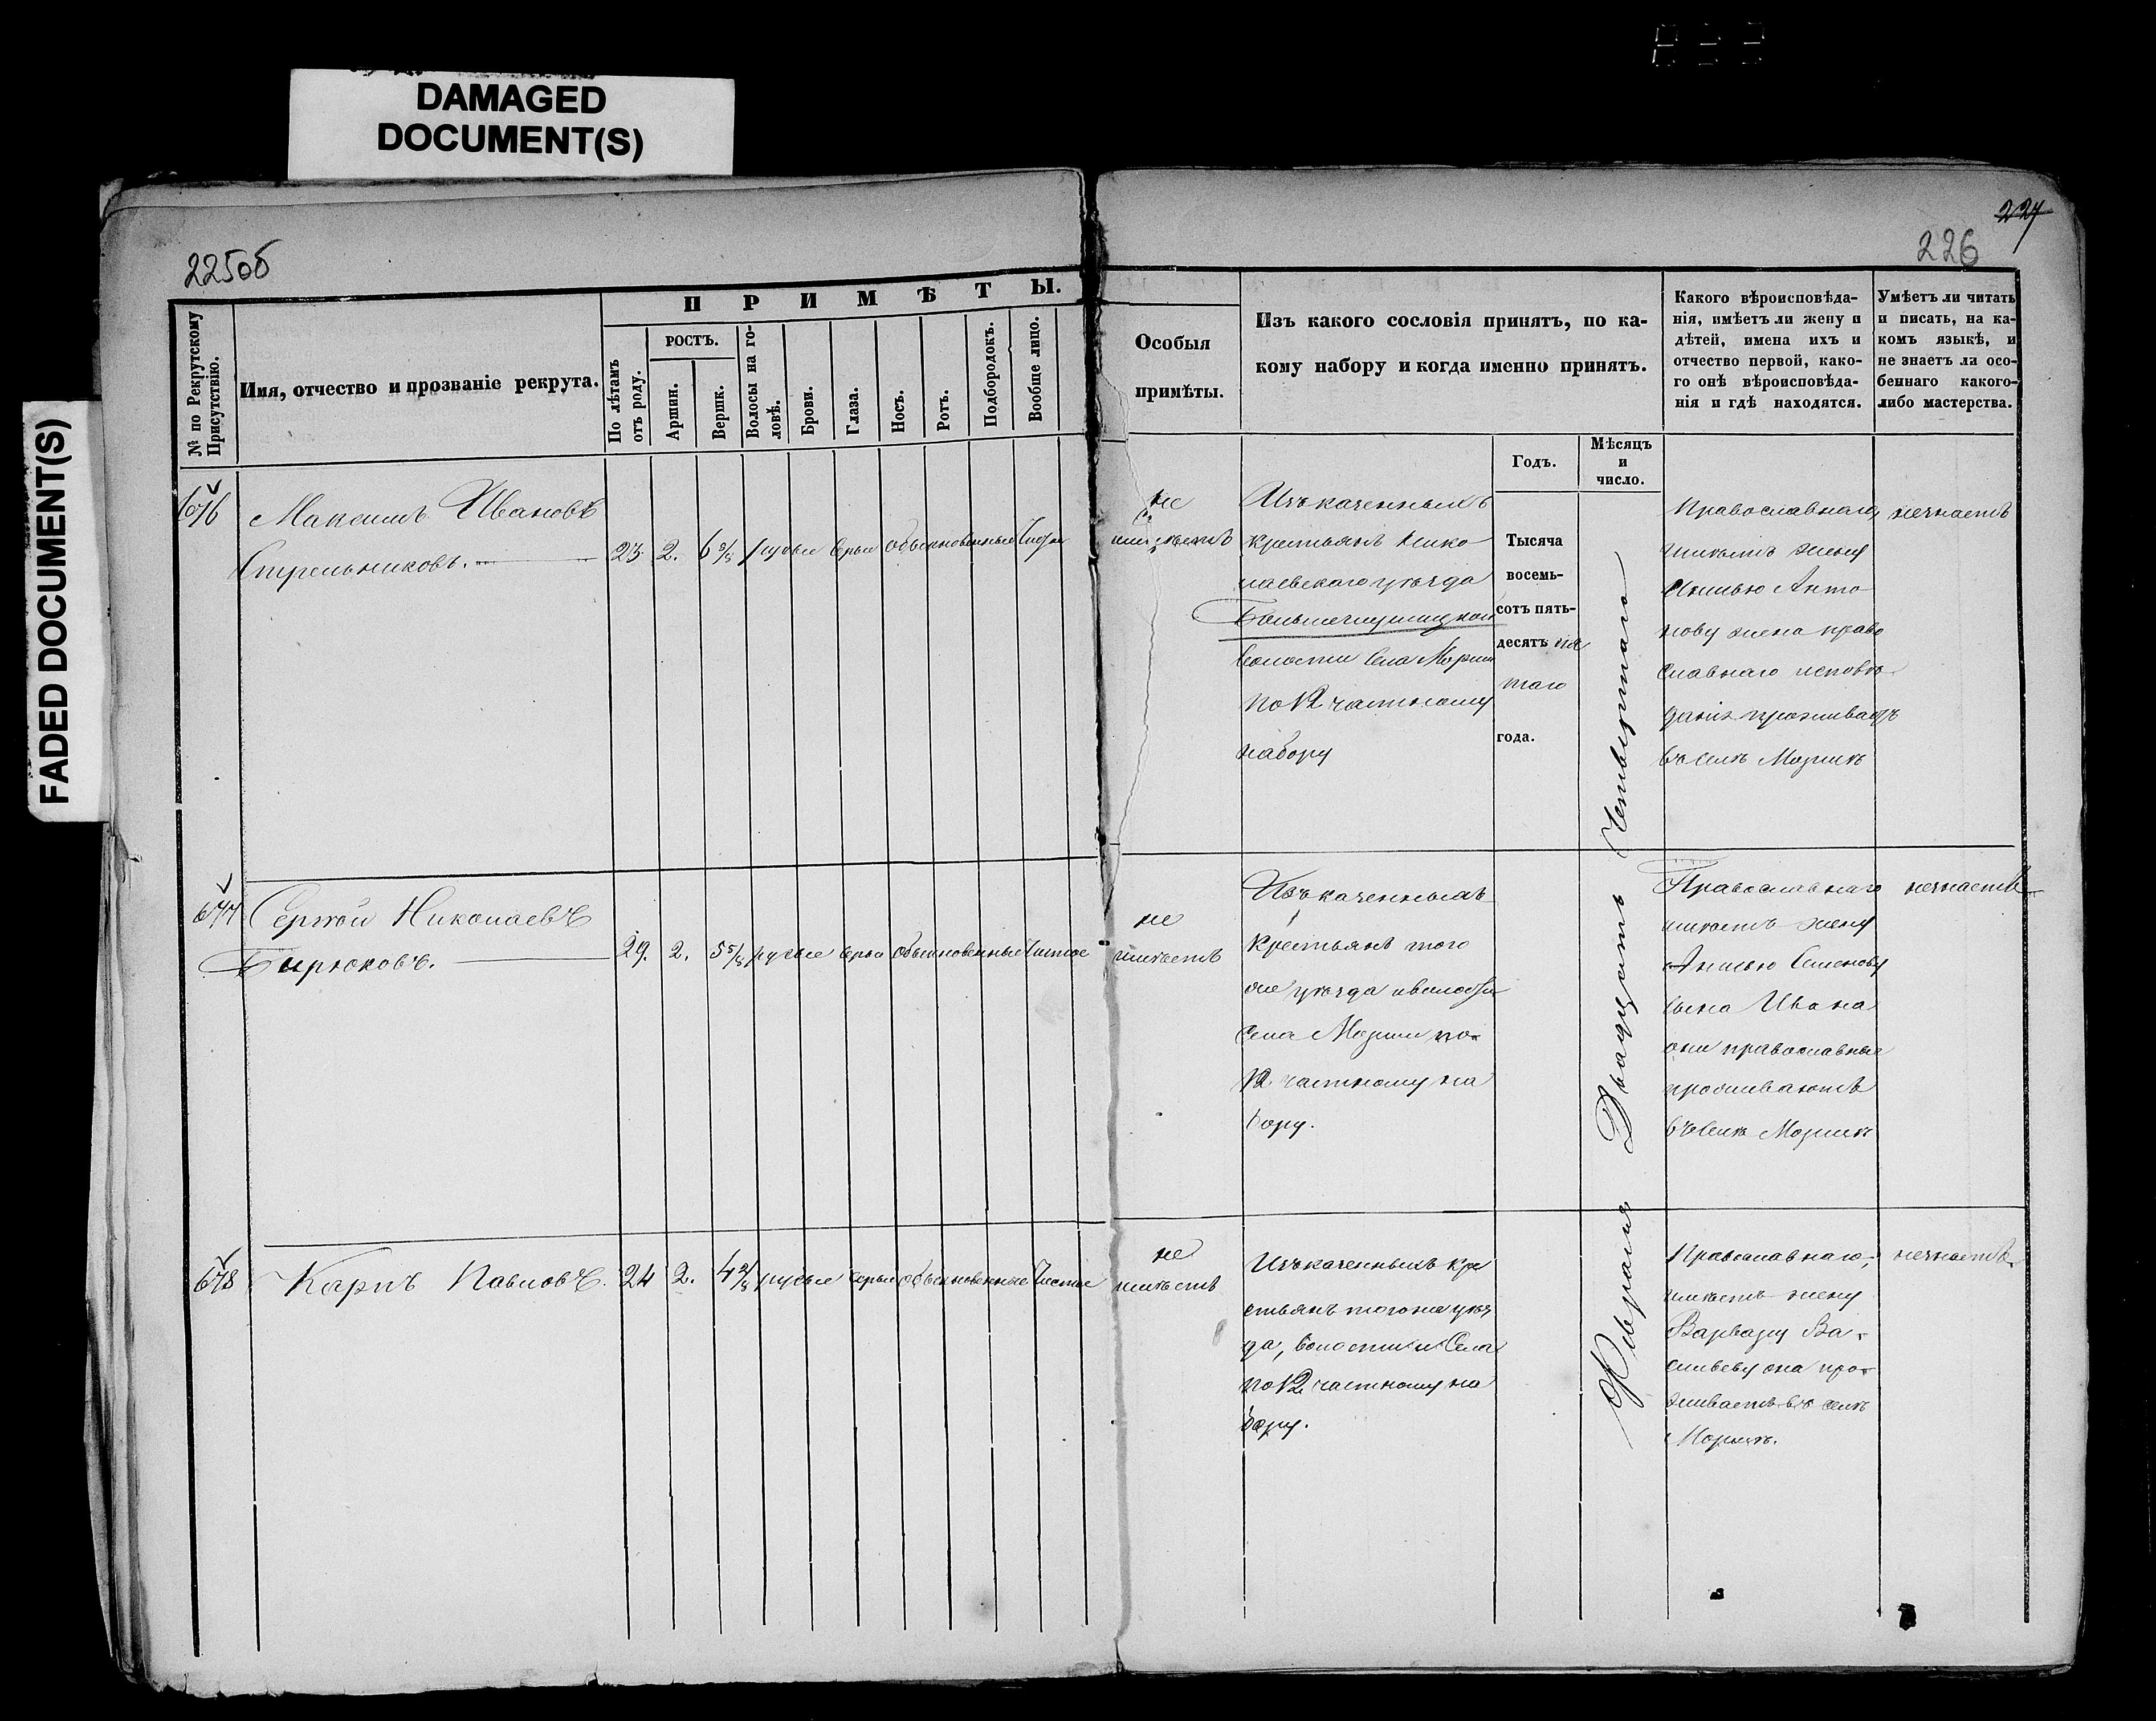 DAMAGED
DOCUMENT(S)
FADED DOCUMENT(S)
225об
227
226
№ по Рекрутскому
Присутствію.
Имя, отчество и прозваніе рекрута.
ПРИМѢТЫ.
По лѣтамъ
отъ роду.
РОСТЪ.
Аршин.
Вершк.
Волосы на го-
ловѣ.
Брови.
Глаза.
Носъ.
Ротъ.
Подбородокъ.
Вообще лицо.
Особыя
примѣты.
Изъ какого сословія принятъ, по ка-
кому набору и когда именно принятъ.
Годъ.
Мѣсяцъ
и
число.
Какого вѣроисповѣда-
нія, имѣетъ ли жену и
дѣтей, имена ихъ и
отчество первой, како-
го онѣ вѣроисповѣда-
нія и гдѣ находятся.
Умѣетъ ли читать
и писать, на ка-
комъ языкѣ, и
не знаетъ ли осо-
беннаго какого-
либо мастерства.
676
Максимъ Ивановъ
Стрельниковъ.
23. 2. 6 русые серые обыкновенные чистое
не
имѣетъ
Изъ казенныхъ
крестьянъ Нико
лаевскаго уѣзда
волости села
по 12 частному
набору
Тысяча
восемь-
сотъ пять-
десятъ пя
таго
года.
Февраля Двадцать Четвертаго
Православнаго,
имѣетъ жену
Анто
нову жена право
славнаго исповѣ
данія проживаетъ
въ селѣ
незнаетъ
677
Сергѣй Николаевъ
Бирюковъ.
29. 2. 5 5/8 русые серые обыкновенные чистое
не
имѣетъ
Изъ казенныхъ
крестьянъ того
же уѣзда и волости
села по
12 частному на
бору.
Православнаго
имѣетъ жену
Анисью Семенову
сына Ивана
они православные
проживаютъ
въ селѣ
незнаетъ
678
Карпъ Павловъ.
24 2. 4 русые серые обыкновенные чистое
не
имѣетъ
Изъ казенныхъ кре
стьянъ тогоже уѣз
да, волости и села
по 12 частному на
бору.
Православнаго,
имѣетъ жену
Варвару Ва-
сильеву она про-
живаетъ въ селѣ
незнаетъ